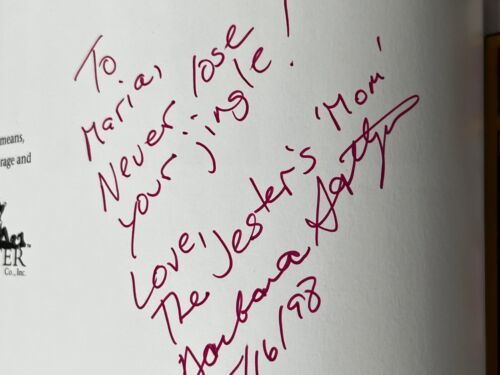 To
Maria,
Never lose
your jingle!
Love,
The Jester's 'Mom'
Barbara
/16/98
means,
rage and
ER
Co., Inc.